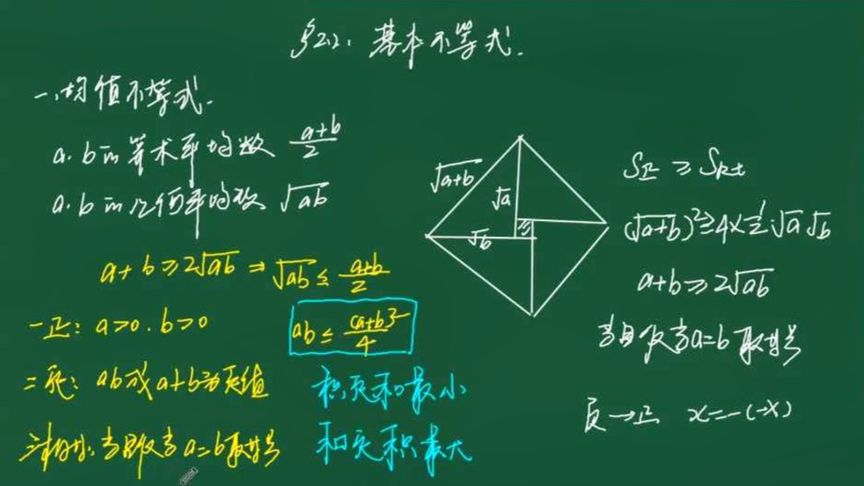 §2.2. 基本不等式.
一、均值不等式.
a.b的算术平均数 \frac{a+b}{2}
a.b的几何平均数 \sqrt{ab}
a+b≥2\sqrt{ab} ⇒ \sqrt{ab} ≤ \frac{a+b}{2}
一正: a>0.b>0
ab ≤ \frac{(a+b)^2}{4}
二定: ab或a+b为定值
积定和最小
三相等: 当且仅当a=b取等号
和定积最大
\sqrt{a+b}
\sqrt{a}
\sqrt{b}
S正 ≥ S
(\sqrt{a+b})^2 ≥ 4×\frac{1}{2}·\sqrt{a}\sqrt{b}
a+b≥2\sqrt{ab}
当且仅当a=b取等号
负→正 x=-(-x)